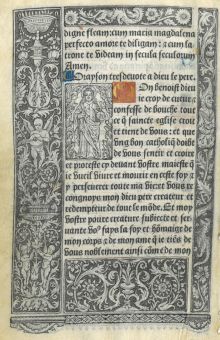 digne fleam: cum maria magdalena
perfecto amore te diligam: & cum la-
trone te videam in secula seculorum
Amen.
Oraison tresdevote a dieu le pere.
On benoist dieu
ie croy de cueur &
confesse de bouche tout
ce q̄ saincte eglise croit
et tient de vous: et que
ung bon catholiq̄ doibt
de vous sentir et croire
et proteste cy devant vostre maieste q̄
ie vueil vivre et mourir en ceste foy &
y perseverer toute ma vie. Et vous re
congnoys mon dieu pere createur et
redempteur de tout le mōde. Et moy
vostre povre creature subiecte et ser-
vante vo⁹ fays la foy et hōmaige de
mon corps & de mon ame q̄ ie tiēs de
vous noblement ainsi cōme de mon